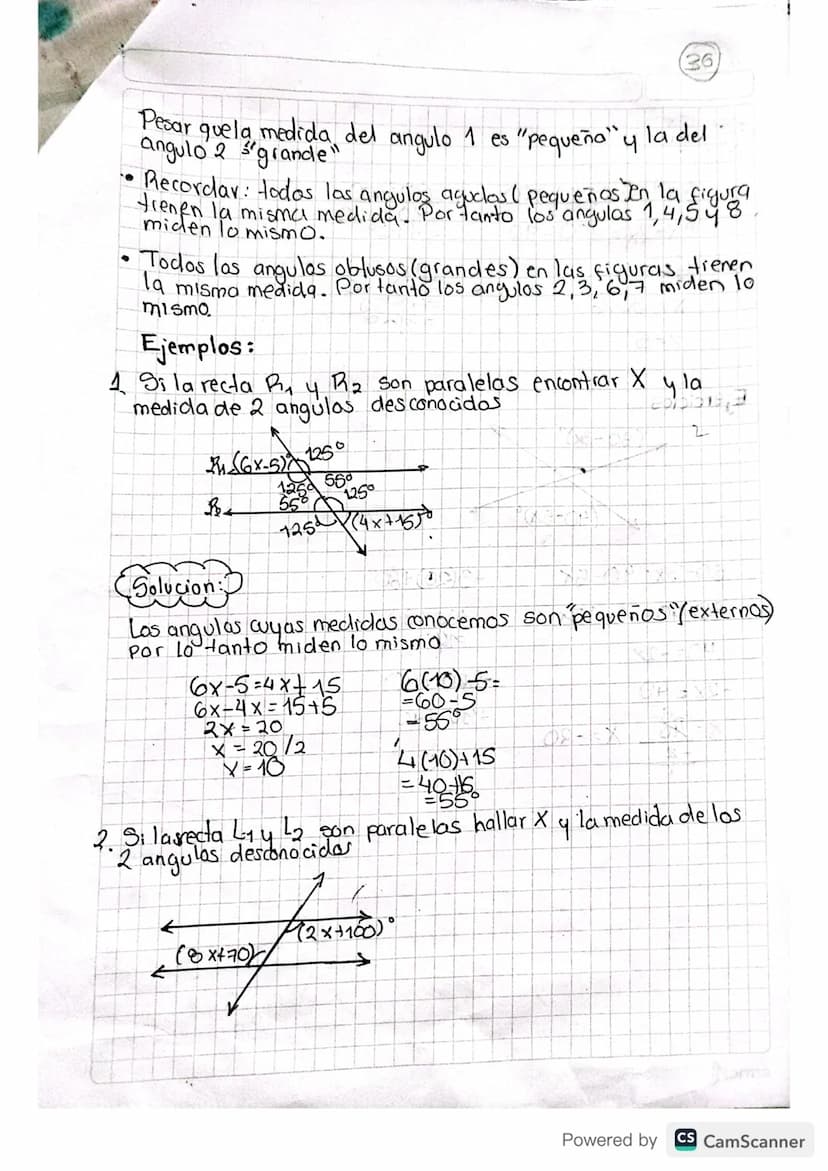 36
Pesar que la medida del angulo 1 es "pequeño" y la del
angulo 2 "grande"
• Recordar: todos los angulos agudos (pequeños en la figura
tienen la misma medida. Por tanto los angulos 1,4,5 y 8
miden lo mismo.
• Todos los angulos obtusos (grandes) en las figuras tienen
la misma medida. Por tanto los angulos 2,3,6,7 miden lo
mismo.
Ejemplos:
1 Si la recta R1 y R2 son paralelas encontrar X y la
medida de 2 angulos desconocidos
R1 (6x-5)° 125°
125° 55°
55° 125°
R2
125° (4x+15)°
Solucion:
Los angulos cuyas medidas conocemos son "pequeños" (externos)
por lo tanto miden lo mismo
6x-5=4x+15
6x-4x=15+5
2x=20
x=20/2
x=10
6(10)-5=
=60-5
=55°
4(10)+15
=40+15
=55°
2. Si la recta L1 y L2 son paralelas hallar X y la medida de los
2 angulos desconocidos
(2x+100)°
(8x+70)
Powered by CS CamScanner